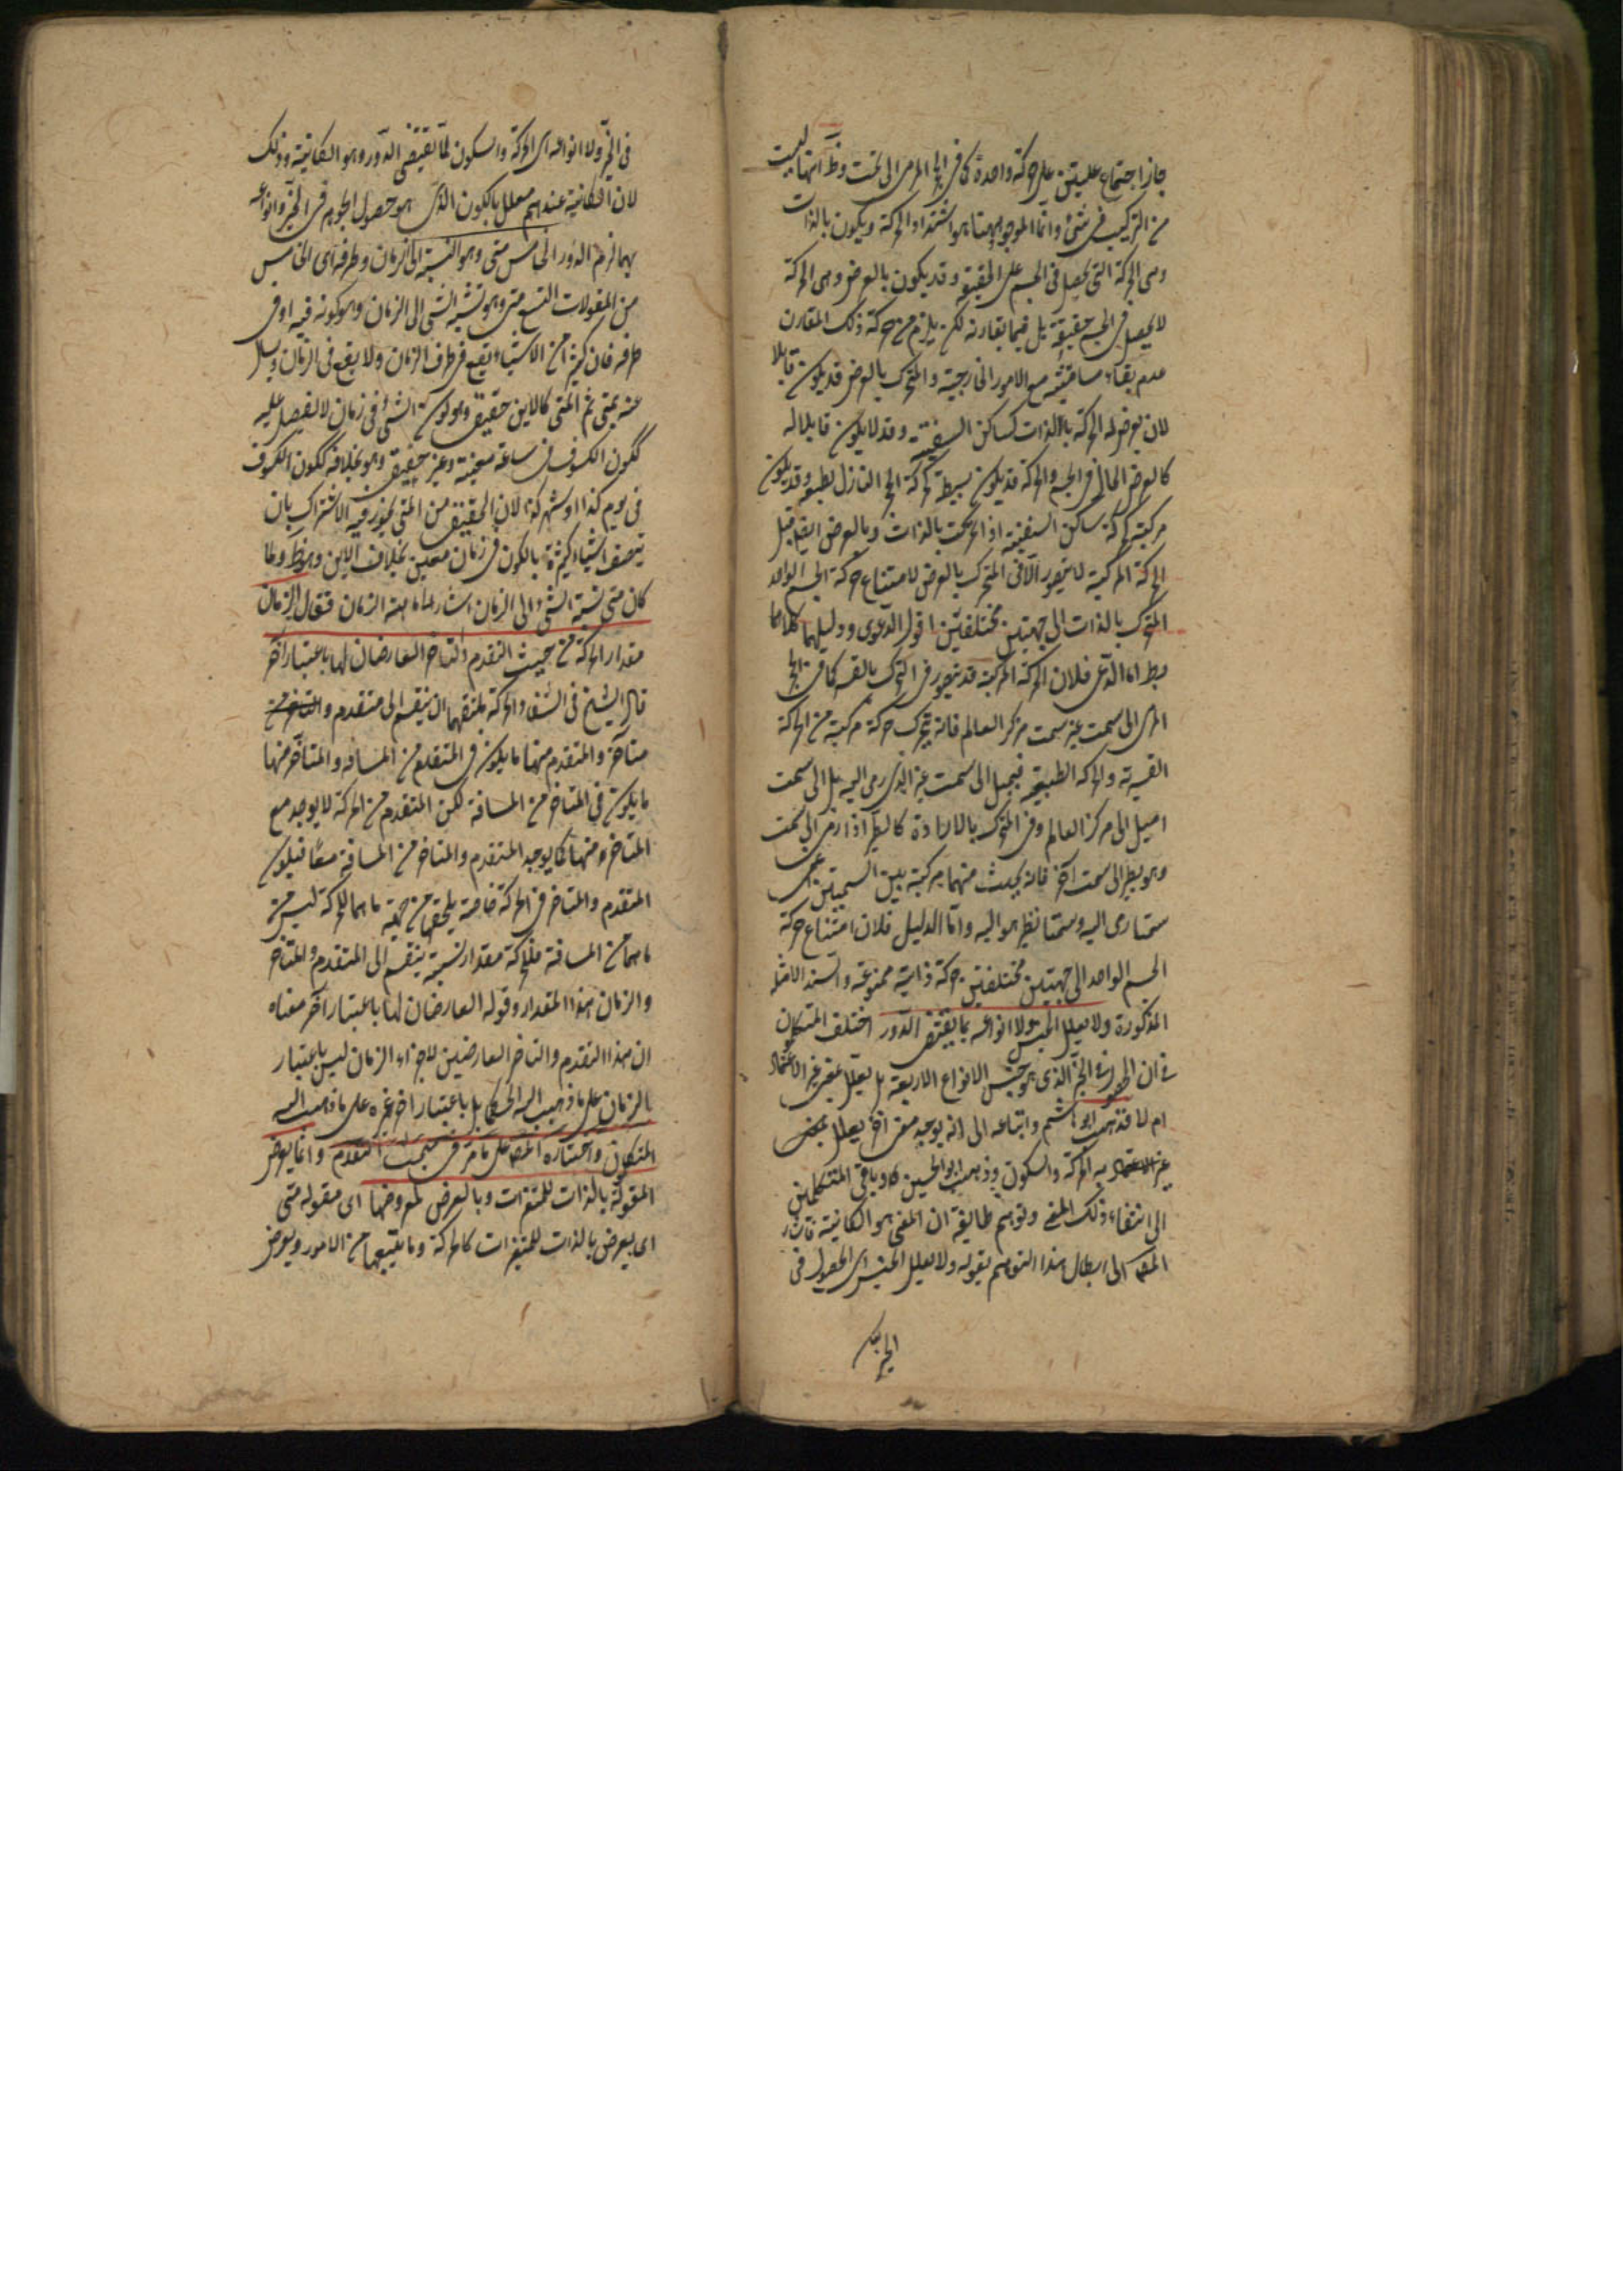 جاز اجتماع علتين على حركة واحدة كما فى الحجر المرمى الى تحت وظ انها ليست
من التركيب فى شئ وانما الموجود ههنا هو اشتداد الحركة ويكون بالذات
وهى الحركة التى تحصل فى الجسم على الحقيقة وقد يكون بالعرض وهى الحركة
لا يحصل فى الجسم حقيقة بل فيما يقارنه لكن يلزم من حركة ذلك المقارن
عدم بقاء مسامتته مع الامور الخارجية والمتحرك بالعرض قد يكون قابلا
لان يعرض له الحركة بالذات كساكن السفينة وقد لا يكون قابلا له
كالعرض الحال فى الجسم والحركة قد يكون بسيطة كحركة الحجر النازل بطبعه وقد يكون
مركبة كحركة ساكن السفينة اذا تحركت بالذات وبالعرض ايضا قيل
الحركة المركبة لا يتصور الا فى المتحرك بالعرض لامتناع حركة الجسم الواحد
المتحرك بالذات الى جهتين مختلفتين اقول الدعوى ودليلها كلاهما
بط اما الدعوى فلان الحركة المركبة قد يتصور فى المتحرك بالقسر كما فى الحجر
المرمى الى سمت غير سمت مركز العالم فانه يتحرك حركة مركبة من الحركة
القسرية والحركة الطبيعية فيميل الى سمت غير الذى رمى اليه بل الى سمت
اميل الى مركز العالم وفى المتحرك بالارادة كالطير اذا رمى الى سمت
وهو يطير الى سمت آخر فانه يحدث منهما مركبة بين السمتين اعنى
سمتا رمى اليه وسمتا يطير هو اليه واما الدليل فلان امتناع حركة
الجسم الواحد الى جهتين مختلفتين حركة ذاتية ممنوعة والسند الامثلة
المذكورة ولا يعلل الجنس ولا انواعه بما يقتضى الدور اختلف المتكلمون
فى ان الحصول فى الحيز الذى هو جنس الانواع الاربعة هل يعلل بمعنى غير الاعتماد
ام لا فذهب ابو هاشم واتباعه الى انه يوجد معنى آخر يعلل بمعنى
غير الاعتماد به الحركة والسكون وذهب ابو الحسين وباقى المتكلمين
الى انتفاء ذلك المعنى وتوهم طائفة ان المعنى هو الكائنية فاشار
المص الى ابطال هذا التوهم بقوله ولا يعلل الجنس اى الحصول فى
الحيز
فى الحيز ولا انواعه اى الحركة والسكون بما يقتضى الدور وهو الكائنية وذلك
لان الكائنية عندهم معلل بالكون الذى هو حصول الجوهر فى الحيز وانواعه
بها لزم الدور الخامس متى وهو النسبة الى الزمان وطرفه اى الخامس
من المقولات التسع متى وهو نسبة الشئ الى الزمان وهو كونه فيه او فى
طرفه فان كثيرا من الاشياء يقع فى طرف الزمان ولا يقع فى الزمان ويسئل
عنه بمتى ثم المتى كالاين حقيقى وهو كون الشئ فى زمان لا يفضل عليه
ككون الكسوف فى ساعة معينة وغير حقيقى وهو بخلافه ككون الكسوف
فى يوم كذا او شهر كذا لان الحقيقى من المتى يجوز فيه الاشتراك بان
يتصف اشياء كثيرة بالكون فى زمان معين بخلاف الاين وهو ظ ولما
كان متى نسبة الشئ الى الزمان اشار الى ماهية الزمان فقال والزمان
مقدار الحركة من حيث التقدم والتاخر العارضان لها باعتبار آخر
قال الشيخ فى الشفا والحركة يلحقها ان ينقسم الى متقدم و
متاخر والمتقدم منها ما يكون فى المتقدم من المسافة والمتاخر منها
ما يكون فى المتاخر من المسافة لكن المتقدم من الحركة لا يوجد مع
المتاخر منها كما يوجد المتقدم والمتاخر من المسافة معا فيكون
المتقدم والمتاخر فى الحركة خاصة يلحقها من جهة ما هما للحركة ليس من جهة
ما هما من المسافة فللحركة مقدار نسبة ينقسم الى المتقدم والمتاخر
والزمان هذا المقدار وقوله العارضان لها باعتبار آخر معناه
ان هذا التقدم والتاخر العارضين لاجزاء الزمان ليس باعتبار
الزمان على ما ذهب اليه الحكما بل باعتبار آخر غيره على ما ذهب اليه
المتكلمون واختاره المص على ما مر فى مبحث التقدم وانما يعرض
المقولة بالذات للمتغيرات وبالعرض لمعروضها اى مقولة متى
اى يعرض بالذات للمتغيرات كالحركة وما يتبعها من الامور ويعرض